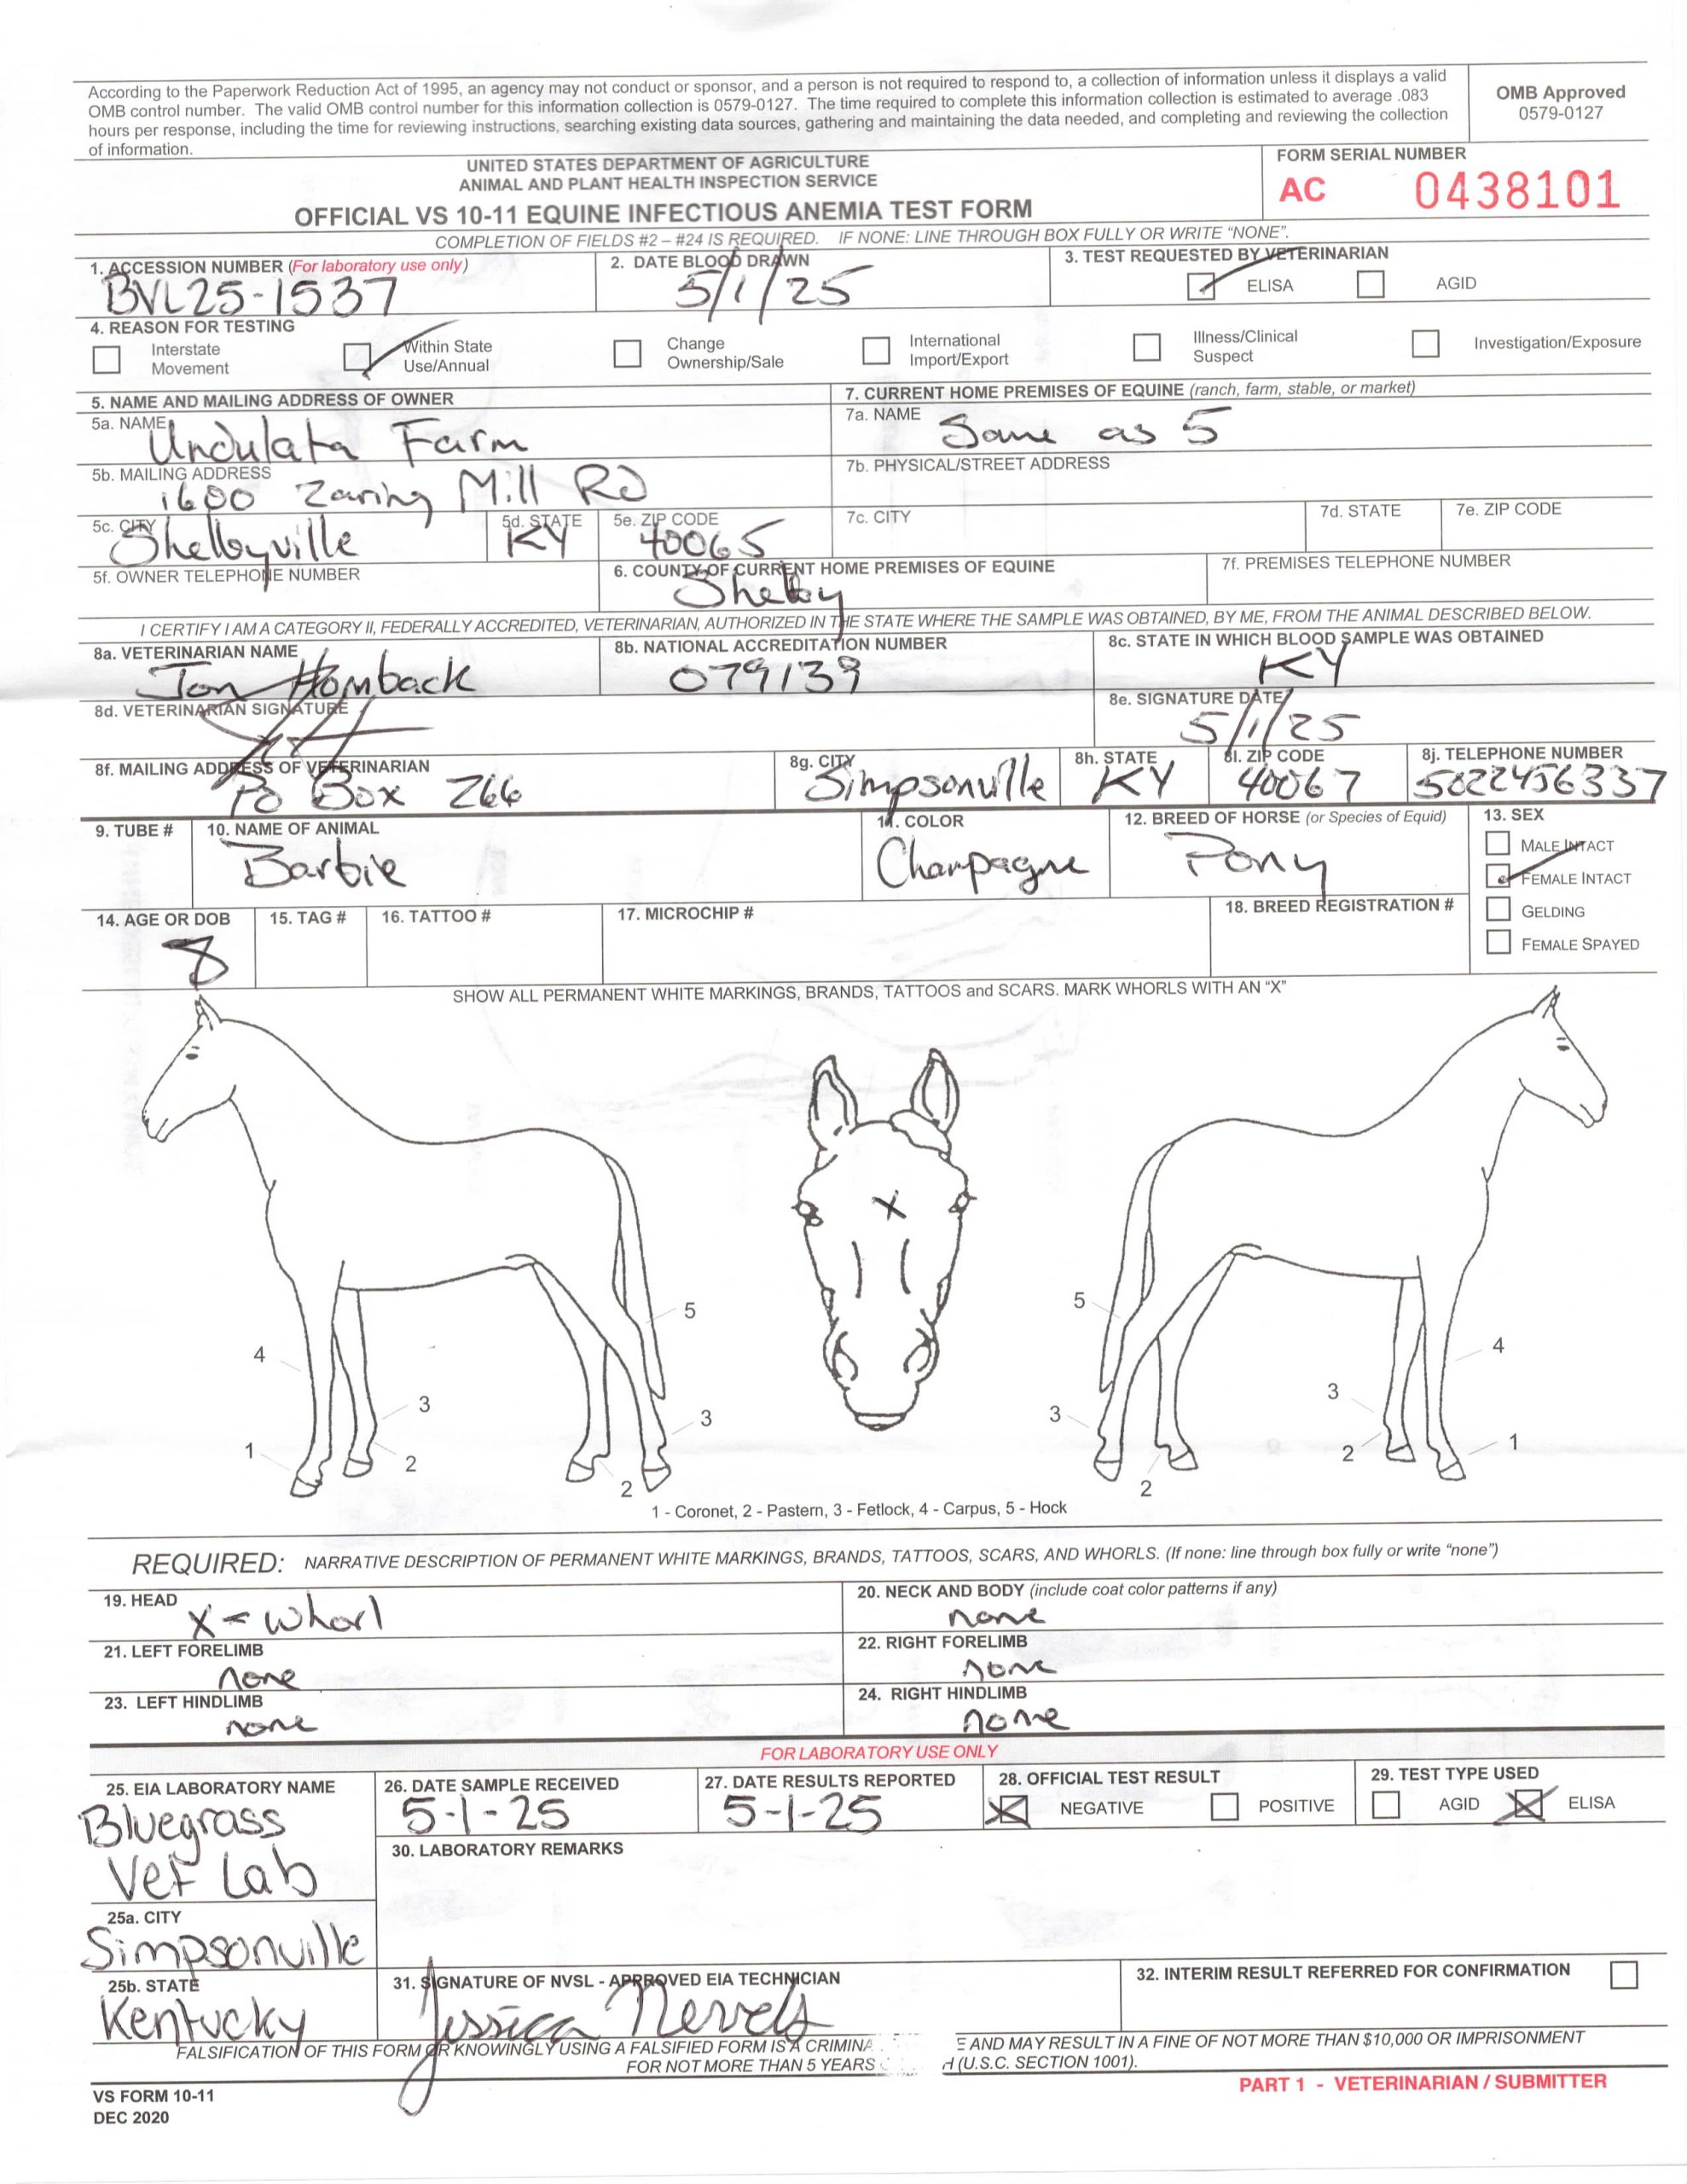 According to the Paperwork Reduction Act of 1995, an agency may not conduct or sponsor, and a person is not required to respond to, a collection of information unless it displays a valid
OMB control number. The valid OMB control number for this information collection is 0579-0127. The time required to complete this information collection is estimated to average .083
hours per response, including the time for reviewing instructions, searching existing data sources, gathering and maintaining the data needed, and completing and reviewing the collection
of information.
OMB Approved
0579-0127
UNITED STATES DEPARTMENT OF AGRICULTURE
ANIMAL AND PLANT HEALTH INSPECTION SERVICE
OFFICIAL VS 10-11 EQUINE INFECTIOUS ANEMIA TEST FORM
FORM SERIAL NUMBER
AC 0438101
COMPLETION OF FIELDS #2 – #24 IS REQUIRED. IF NONE: LINE THROUGH BOX FULLY OR WRITE “NONE”.
1. ACCESSION NUMBER (For laboratory use only)
BVL25-1537
2. DATE BLOOD DRAWN
5/1/25
3. TEST REQUESTED BY VETERINARIAN
ELISA AGID
4. REASON FOR TESTING
Interstate Movement
Within State Use/Annual
Change Ownership/Sale
International Import/Export
Illness/Clinical Suspect
Investigation/Exposure
5. NAME AND MAILING ADDRESS OF OWNER
5a. NAME
Undulata Farm
7. CURRENT HOME PREMISES OF EQUINE (ranch, farm, stable, or market)
7a. NAME
Same as 5
5b. MAILING ADDRESS
1600 Zaring Mill RD
7b. PHYSICAL/STREET ADDRESS
5c. CITY
Shelbyville
5d. STATE
KY
5e. ZIP CODE
40065
7c. CITY
7d. STATE
7e. ZIP CODE
5f. OWNER TELEPHONE NUMBER
6. COUNTY OF CURRENT HOME PREMISES OF EQUINE
Shelby
7f. PREMISES TELEPHONE NUMBER
I CERTIFY I AM A CATEGORY II, FEDERALLY ACCREDITED, VETERINARIAN, AUTHORIZED IN THE STATE WHERE THE SAMPLE WAS OBTAINED, BY ME, FROM THE ANIMAL DESCRIBED BELOW.
8a. VETERINARIAN NAME
Jon Hornback
8b. NATIONAL ACCREDITATION NUMBER
079139
8c. STATE IN WHICH BLOOD SAMPLE WAS OBTAINED
KY
8d. VETERINARIAN SIGNATURE
8e. SIGNATURE DATE
5/1/25
8f. MAILING ADDRESS OF VETERINARIAN
PO Box 266
8g. CITY
Simpsonville
8h. STATE
KY
8i. ZIP CODE
40067
8j. TELEPHONE NUMBER
5022456337
9. TUBE #
10. NAME OF ANIMAL
Barbie
11. COLOR
Champagne
12. BREED OF HORSE (or Species of Equid)
Pony
13. SEX
MALE INTACT
FEMALE INTACT
GELDING
FEMALE SPAYED
14. AGE OR DOB
8
15. TAG #
16. TATTOO #
17. MICROCHIP #
18. BREED REGISTRATION #
SHOW ALL PERMANENT WHITE MARKINGS, BRANDS, TATTOOS and SCARS. MARK WHORLS WITH AN “X”
X
5 5
4 4
3 3 3 3
1 2 2 2 2 1
1 - Coronet, 2 - Pastern, 3 - Fetlock, 4 - Carpus, 5 - Hock
REQUIRED: NARRATIVE DESCRIPTION OF PERMANENT WHITE MARKINGS, BRANDS, TATTOOS, SCARS, AND WHORLS. (If none: line through box fully or write “none”)
19. HEAD
X = whorl
20. NECK AND BODY (include coat color patterns if any)
none
21. LEFT FORELIMB
none
22. RIGHT FORELIMB
none
23. LEFT HINDLIMB
none
24. RIGHT HINDLIMB
none
FOR LABORATORY USE ONLY
25. EIA LABORATORY NAME
Bluegrass
Vet Lab
26. DATE SAMPLE RECEIVED
5-1-25
27. DATE RESULTS REPORTED
5-1-25
28. OFFICIAL TEST RESULT
NEGATIVE POSITIVE
29. TEST TYPE USED
AGID ELISA
30. LABORATORY REMARKS
25a. CITY
Simpsonville
25b. STATE
Kentucky
31. SIGNATURE OF NVSL - APPROVED EIA TECHNICIAN
Jessica Nevels
32. INTERIM RESULT REFERRED FOR CONFIRMATION
FALSIFICATION OF THIS FORM OR KNOWINGLY USING A FALSIFIED FORM IS A CRIMINA E AND MAY RESULT IN A FINE OF NOT MORE THAN $10,000 OR IMPRISONMENT
FOR NOT MORE THAN 5 YEARS d (U.S.C. SECTION 1001).
VS FORM 10-11
DEC 2020
PART 1 - VETERINARIAN / SUBMITTER